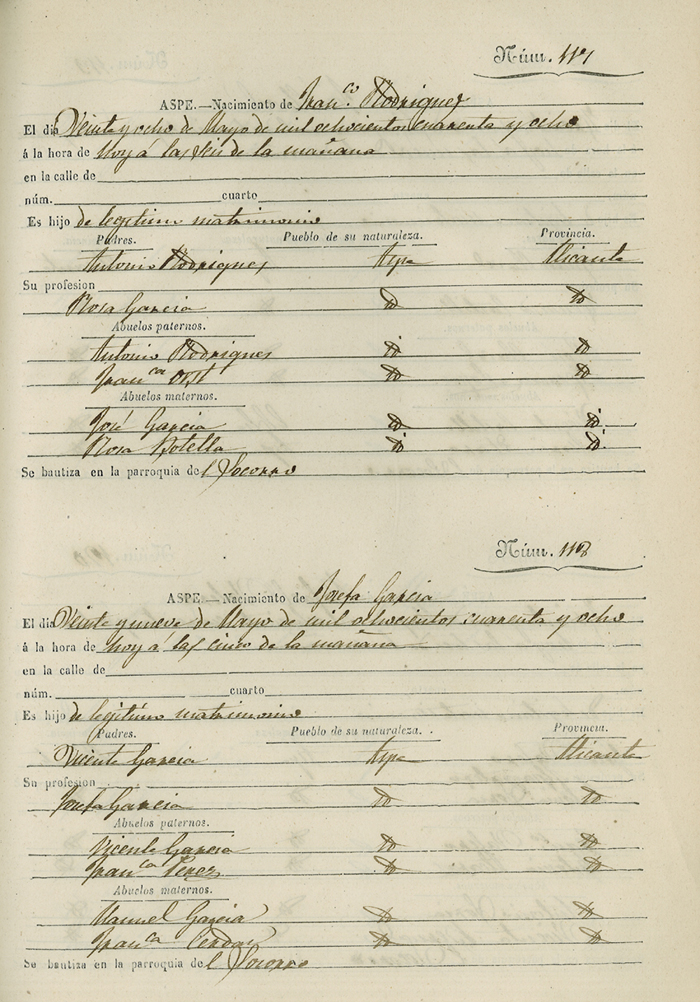 Núm. 117
ASPE.—Nacimiento de Fran.co Rodriguez
El dia Veinte y ocho de Mayo de mil ochocientos cuarenta y ocho
á la hora de hoy á las seis de la mañana
en la calle de
núm. cuarto
Es hijo de legitimo matrimonio
Padres. Pueblo de su naturaleza. Provincia.
Antonio Rodriguez Aspe Alicante
Su profesion
Rosa Garcia Do Do
Abuelos paternos.
Antonio Rodriguez Do Do
Fran.ca Do Do
Abuelos maternos.
José Garcia Do Do
Rosa Botella Do Do
Se bautiza en la parroquia del Socorro
Núm. 118
ASPE.—Nacimiento de Josefa Garcia
El dia Veinte y nueve de Mayo de mil ochocientos cuarenta y ocho
á la hora de hoy á las cinco de la mañana
en la calle de
núm. cuarto
Es hijo de legitimo matrimonio
Padres. Pueblo de su naturaleza. Provincia.
Vicente Garcia Aspe Alicante
Su profesion
Josefa Garcia Do Do
Abuelos paternos.
Vicente Garcia Do Do
Fran.ca Perez Do Do
Abuelos maternos.
Manuel Garcia Do Do
Fran.ca Cerdan Do Do
Se bautiza en la parroquia del Socorro